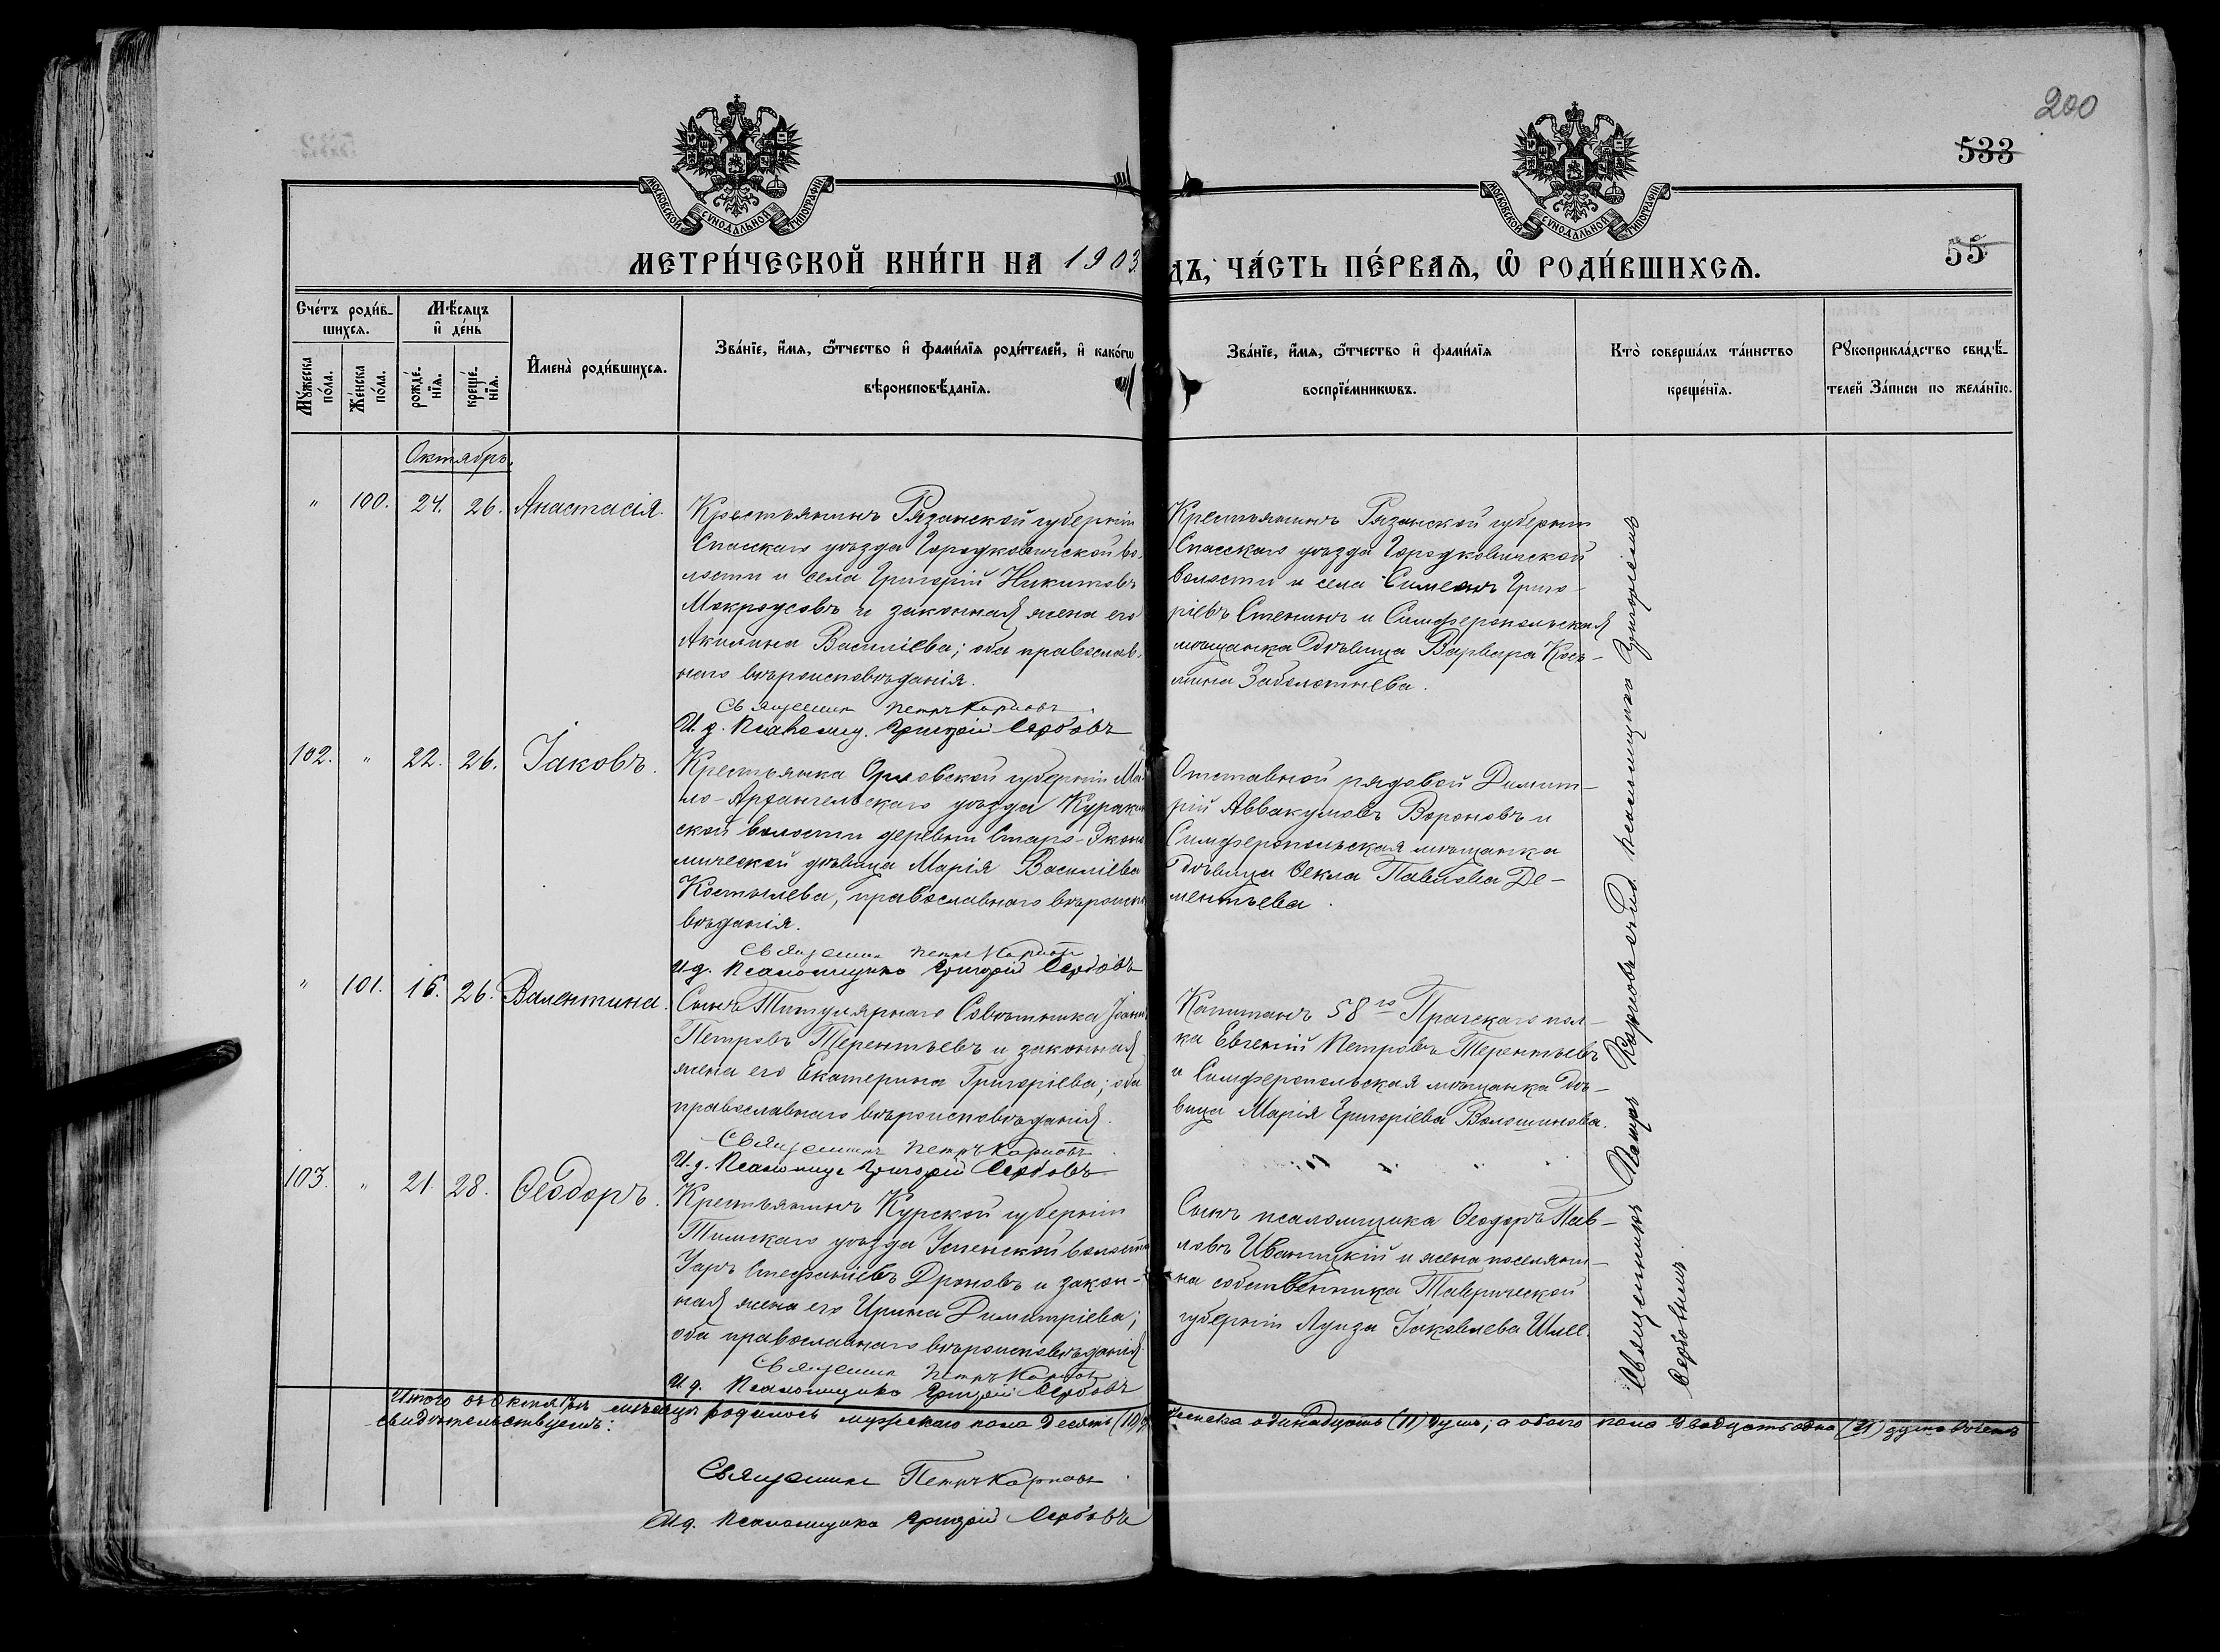 200
533
55
МОСКОВСКОЙ СѴНОДАЛЬНОЙ ТИПОГРАФІИ
МОСКОВСКОЙ СѴНОДАЛЬНОЙ ТИПОГРАФІИ
МЕТРИ́ЧЕСКОЙ КНИ́ГИ НА 1903
ДЪ, ЧА́СТЬ ПЕ́РВАѦ, Ѡ҆ РОДИ́ВШИХСѦ.
Сче́тъ роди́в-
шихсѧ.
Мꙋ́жеска по́ла.
Же́нска по́ла.
Мѣ́сѧцъ
и҆ де́нь
рожде́-
нїѧ.
креще́-
нїѧ.
И҆мена̀ роди́вшихсѧ.
Зва́нїе, и҆́мѧ, ѻ҆́тчество и҆ фами́лїѧ роди́телей, и҆ како́гѡ
вѣроисповѣ́данїѧ.
Зва́нїе, и҆́мѧ, ѻ҆́тчество и҆ фами́лїѧ
воспрїе́мникѡвъ.
Кто̀ соверша́лъ та́инство
креще́нїѧ.
Рꙋкоприкла́дство свидѣ́-
телей За́писи по жела́нїю.
Октябрь.
" 100. 24. 26. Анастасія.
Крестьянинъ Рязанской губерніи
Спасскаго уѣзда Городковичской во-
лости и села Григорій Никитовъ
Мокроусовъ и законная жена его
Акилина Василіева; оба православ-
наго вѣроисповѣданія.
Священникъ Петръ Карповъ.
И. д. Псаломщ. Григорій Сербовъ
Крестьянинъ Рязанской губерніи
Спасскаго уѣзда Городковичской
волости и села Симеонъ Григо-
ріевъ Стенинъ и Симферопольская
мѣщанка дѣвица Варвара Кось-
мина Заболотнева.
102. " 22. 26. Іаковъ.
Крестьянка Орловской губерніи Ма-
ло-Архангельскаго уѣзда Куракин
ской волости деревни Старо-Эконо
мической дѣвица Марія Василіева
Костылева, православнаго вѣроиспо
вѣданія.
Священникъ Петръ Карповъ
И. д. Псаломщика Григорій Сербовъ
Отставной рядовой Димит-
рій Аввакумовъ Вороновъ и
Симферопольская мѣщанка
дѣвица Ѳекла Павлова Де-
ментьева.
" 101. 15. 26. Валентина.
Сынъ Титулярнаго Совѣтника Іоаннъ
Петровъ Терентьевъ и законная
жена его Екатерина Григоріева; оба
православнаго вѣроисповѣданія.
Священникъ Петръ Карповъ.
И. д. Псаломщ Григорій Сербовъ
Капитанъ 58го Прагскаго пол-
ка Евгеній Петровъ Терентьевъ
и Симферопольская мѣщанка дѣ-
вица Марія Григоріева Волошинова.
103. " 21. 28. Ѳеодоръ.
Крестьянинъ Курской губерніи
Тимскаго уѣзда Успенской волости
Уаръ Стефаніевъ Дроновъ и закон-
ная жена его Ирина Димитріева;
оба православнаго вѣроисповѣданія.
Священникъ Петръ Карповъ
И. д. Псаломщика Григорій Сербовъ
Сынъ псаломщика Ѳеодоръ Пав-
ловъ Иваницкій и жена поселяни-
на собственника Таврической
губерніи Луиза Іаковлева Шлее.
Священникъ Петръ Карповъ съ и.д. псаломщика Григоріемъ
Сербовымъ.
Итого въ Октябрѣ мѣсяцѣ родилось мужескаго пола десять (10), женска одинадцать (11) душъ; а обоего пола двадцать одна (21) душа въ чемъ
свидѣтельствуемъ:
Священникъ Петръ Карповъ.
И д. Псаломщика Григорій Сербовъ